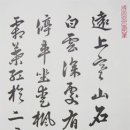 遠上寒山石
白雲深處有
停車坐愛楓
霜葉紅於二